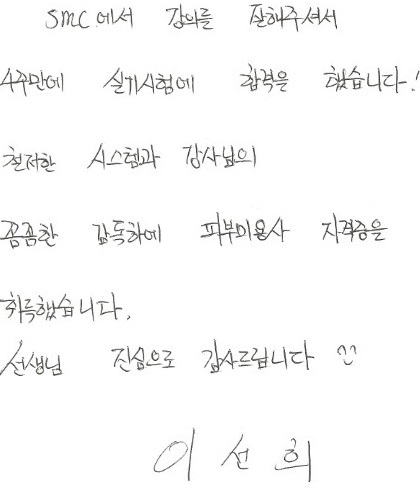 SMC에서 강의를 잘해주셔서
4주만에 실기시험에 합격을 했습니다!
철저한 시스템과 강사님의
꼼꼼한 감독하에 피부미용사 자격증을
취득했습니다.
선생님 진심으로 감사드립니다 ^^
이선희